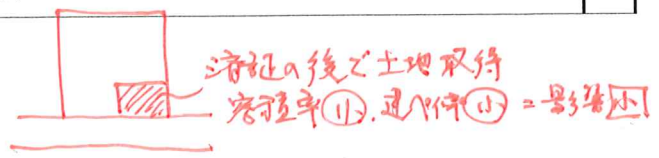 済証の後で土地取得
容積率小、建ペイ率小 = 影響小